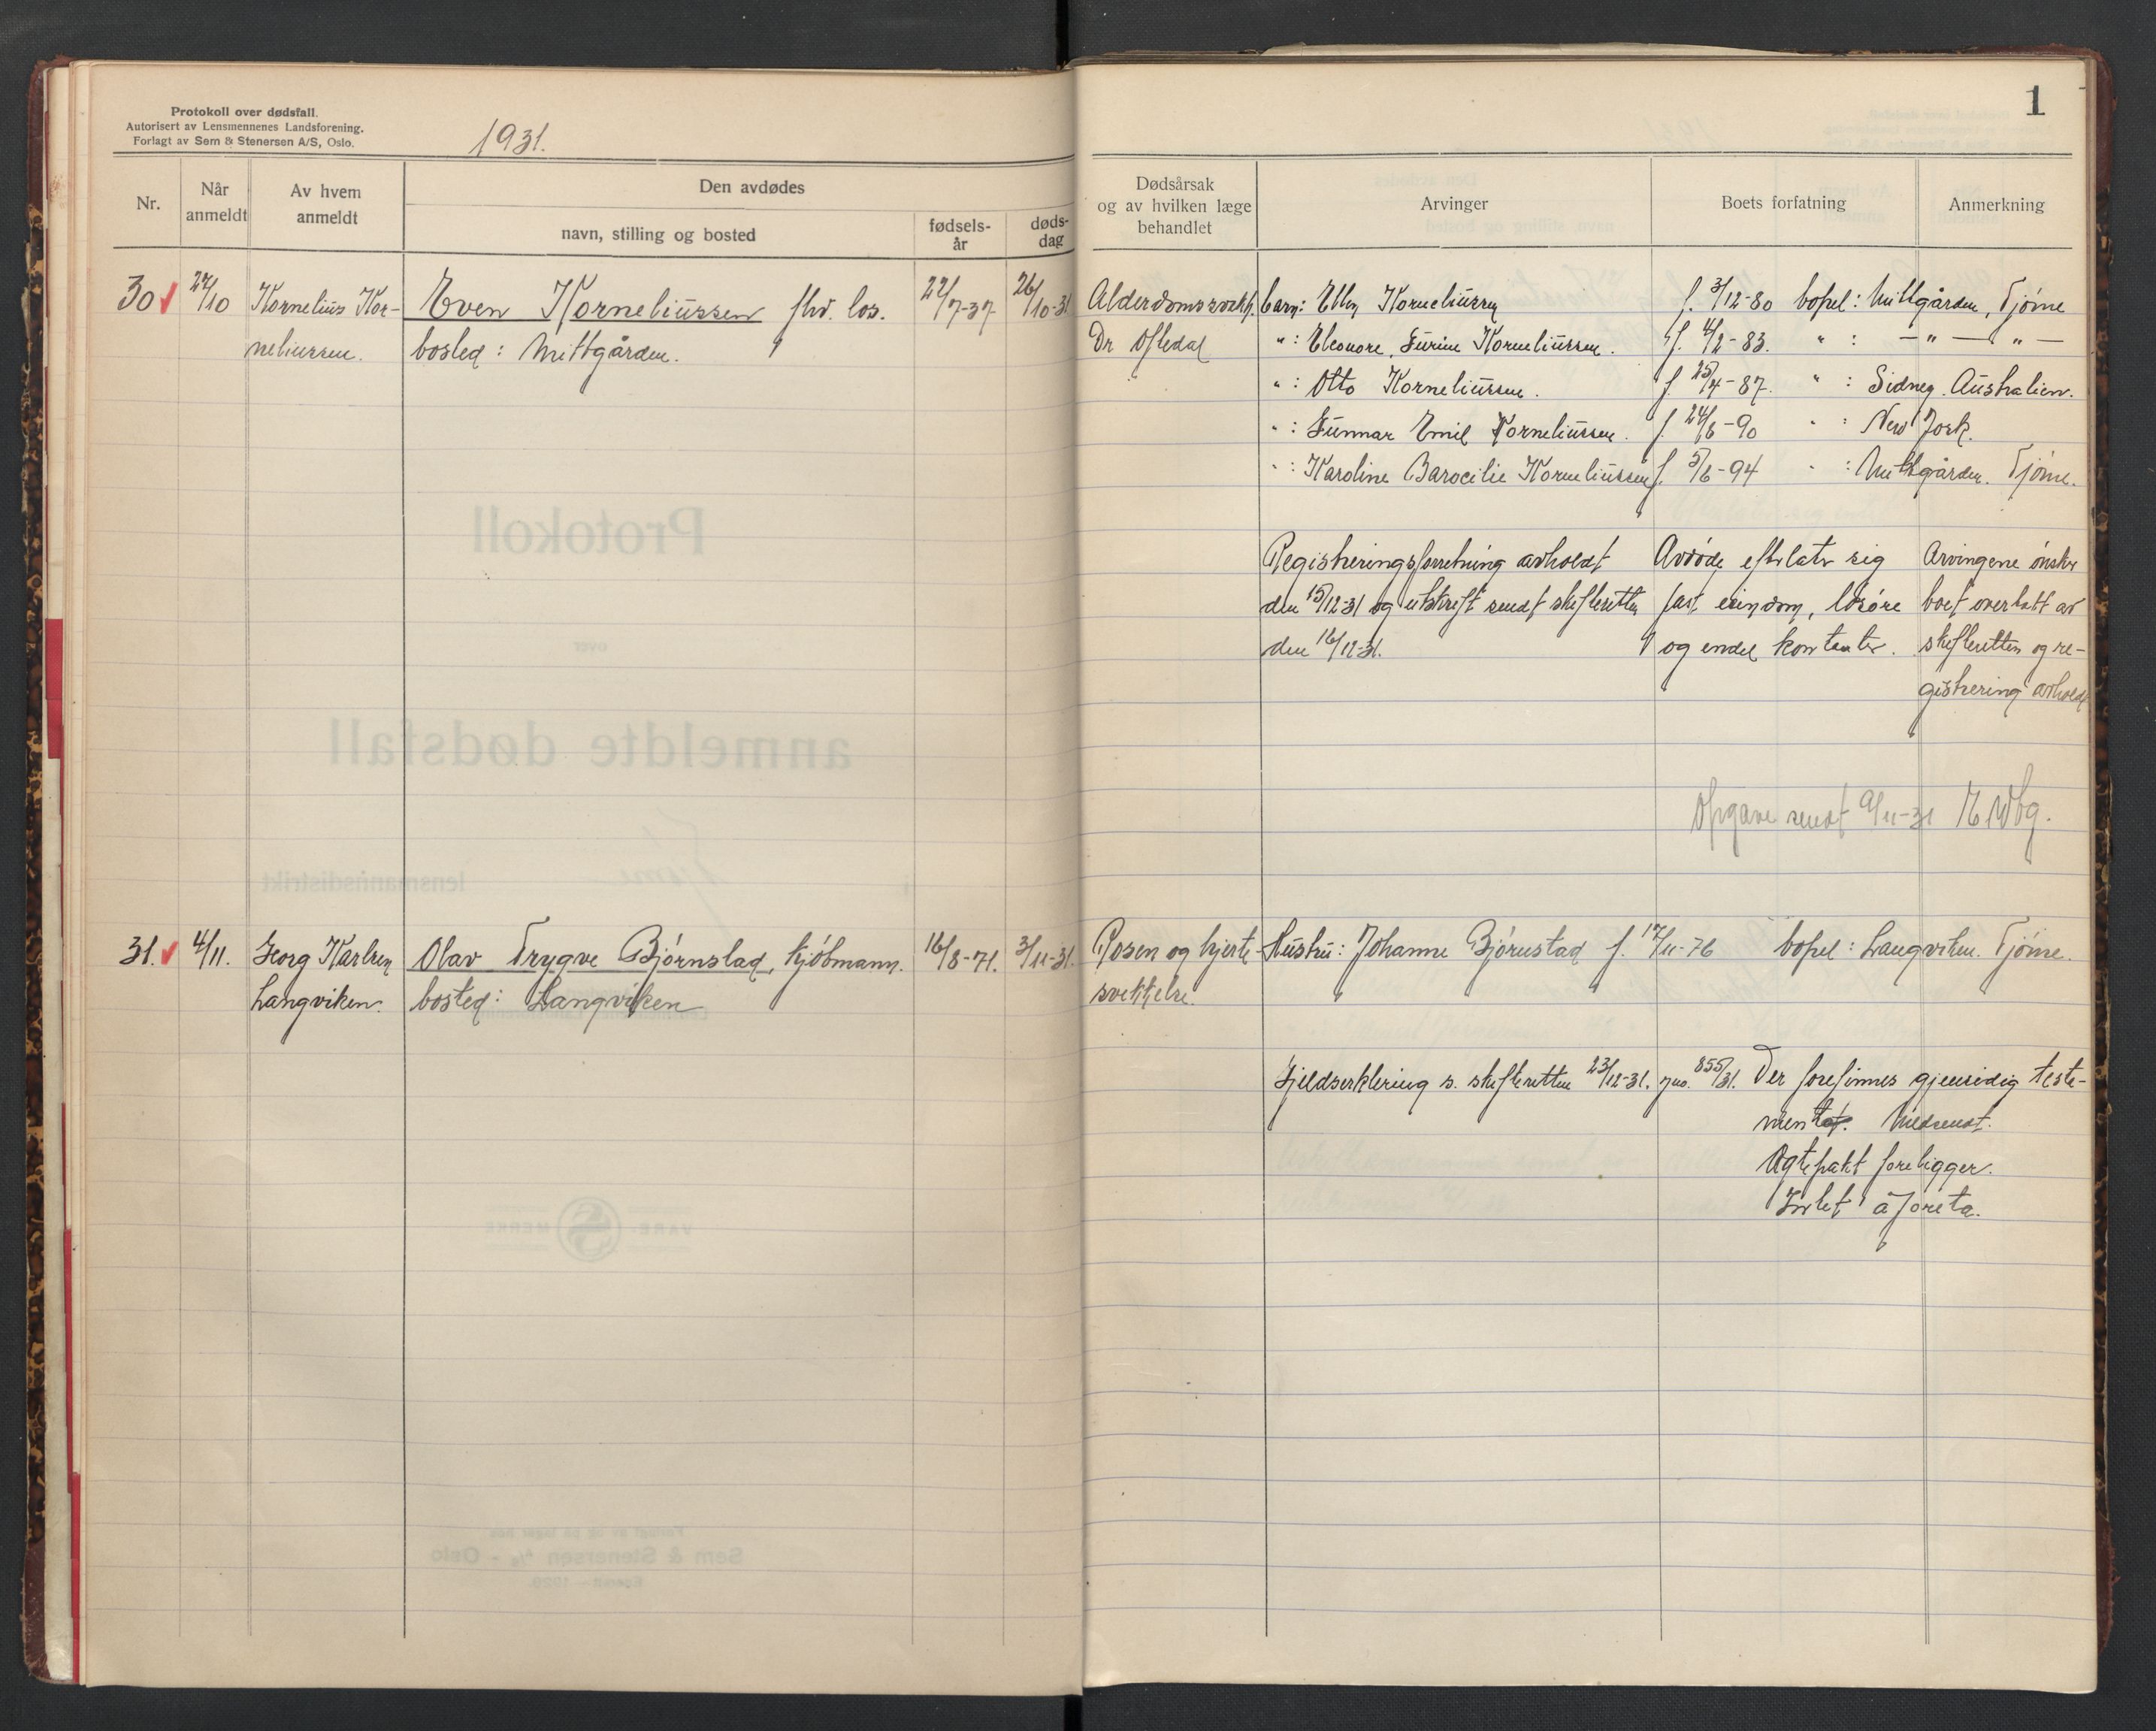 Protokoll over dødsfall.
Autorisert av Lensmennenes Landsforening.
Forlagt av Sem & Stenersen A/S, Oslo.
1931.
Nr.
Når anmeldt
Av hvem anmeldt
Den avdødes
navn, stilling og bosted
fødsels-
år
døds-
dag
30 27/10 Kornelius Kor- Even Korneliussen fhv. los. 22/7-37 26/10-31
neliussen. bosted: Mittgården.
31. 4/11. Georg Karlsen Olav Trygve Bjørnstad, kjøbmann. 16/8-71. 3/11-31.
Langviken. bosted: Langviken
1
Dødsårsak
og av hvilken læge
behandlet
Arvinger
Boets forfatning
Anmerkning
Alderdomssvekk. barn: Ellen Korneliussen f. 3/12-80 bopel: Mittgården, Tjøme
Dr Oftedal " : Eleonore Korneliussen. f. 4/2-83. " : — " — " —
" : Otto Korneliussen. f. 25/4-87. " : Sidney. Australien.
" : Gunnar Emil Korneliussen. f. 24/6-90 " : New York.
" : Karoline Korneliussen f. 5/6-94 " : Mittgården. Tjøme.
Registreringsforretning avholdt Avdøde efterlater sig Arvingene ønsker
den 15/12-31 og utskrift sendt skifteretten fast eiendom, løsøre boet overlatt av
den 16/12-31. og endel kontanter. skifteretten og re-
gistrering avholdt
Opgave sendt 9/11-31
Rosen og hjerte- Hustru: Johanne Bjørnstad f. 17/11-76 bopel: Langviken. Tjøme.
svekkelse.
Gjeldserklering s. skifteretten 23/12-31. jno. 855/31. Der forefinnes gjensidig teste-
ment. Medsendt.
Ægtepakt foreligger.
Intet å foreta.